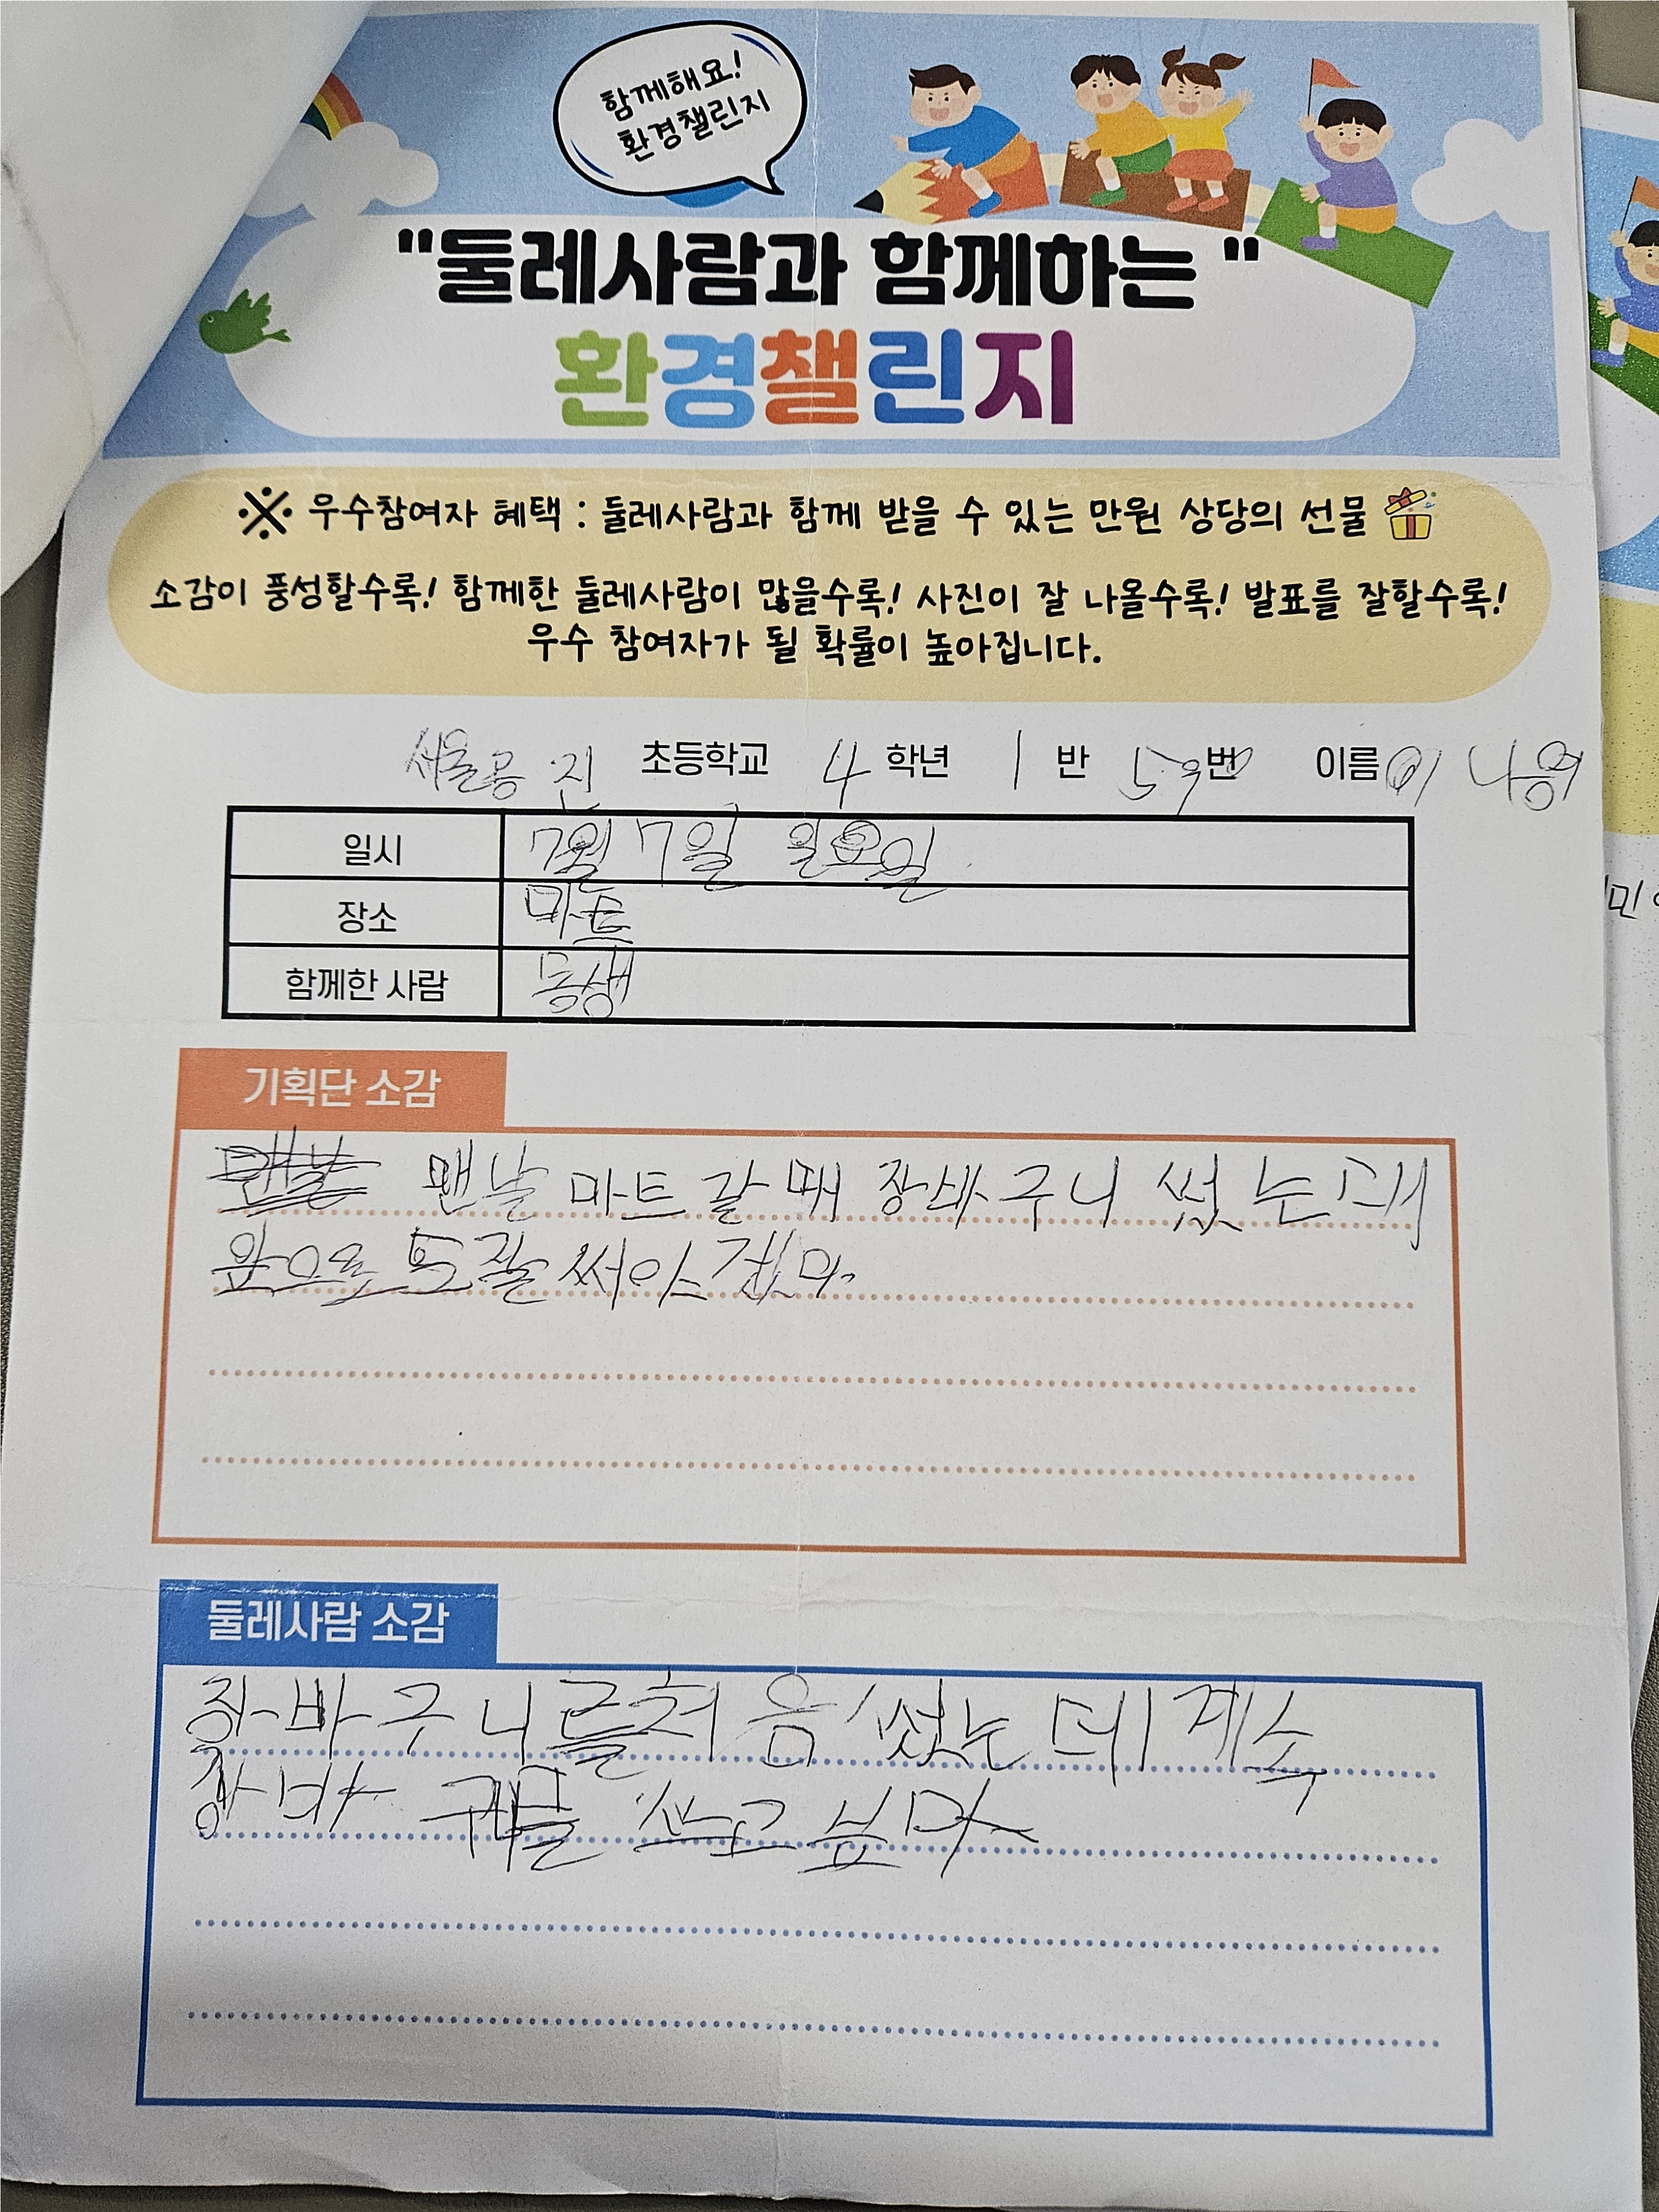 함께해요!
환경챌린지
"둘레사람과 함께하는 "
환경챌린지
※ 우수참여자 혜택 : 둘레사람과 함께 받을 수 있는 만원 상당의 선물
소감이 풍성할수록! 함께한 둘레사람이 많을수록! 사진이 잘 나올수록! 발표를 잘할수록!
우수 참여자가 될 확률이 높아집니다.
서울공진 초등학교 4 학년 1 반 번 이름 이
일시 7월 7일 월요일
장소 마트
함께한 사람 동생
기획단 소감
맨날 마트 갈 때 장바구니 썼는데
앞으로도 잘 써야겠다.
둘레사람 소감
장바구니를 처음 썼는데 계속
쓰고 싶다